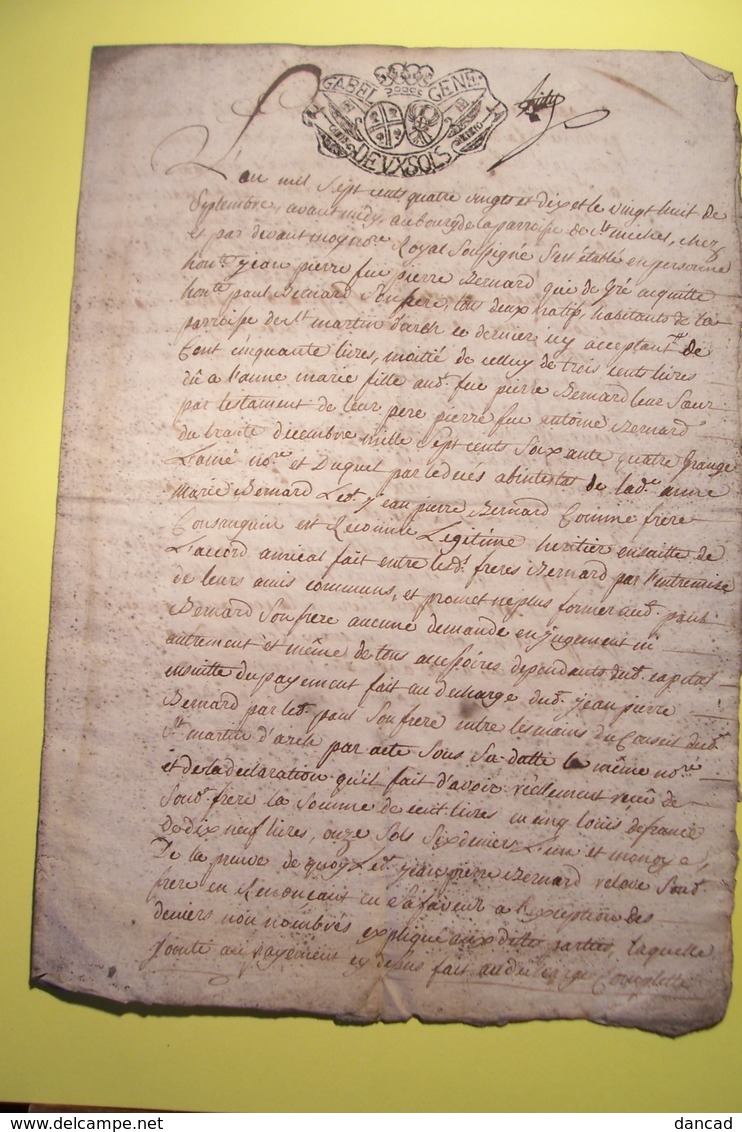 GABEL GENE.
DEVX SOLS
L'an mil sept cents quatre vingts et dix et le vingt huit de
Septembre, avant midy, au bourg de la parroise de St michel, chez
et par devant moy nore Royal Soussigné S'est établi en personne
honte jean pierre fue pierre Bernard qui de gré acquitte
honte paul Bernard Son frere, tous deux natifs, habitants de la
parroise de St martin d'arch ce dernier icy acceptant de
Cent cinquante livres, moitié de celluy de trois cents livres
dû a l'anne marie fille aud. fue pierre Bernard leur Sœur
par testament de leur pere pierre fue antoine Bernard
du trante décembre mille sept cents soixante quatre Grange
L'ainé nore et Duquel par le décés abintestat de lade anne
marie Bernard Led. jean pierre Bernard Comme frere
Consanguin est Reconnu Legitime heritier ensuitte de
L'accord amical fait entre lesd. freres Bernard par l'entremise
de leurs amis communs, et promet ne plus former aud. paul
Bernard Son frere aucune demande en jugement ni
autrement et même de tous accessoires dependants dud. capital
ensuitte du payement fait au decharge dud. jean pierre
Bernard par led. paul Son frere entre les mains du Conseil dud.
St martin d'arch par acte Sous Sa datte le même nore
et de la declaration qu'il fait d'avoir réellement receu de
Sond. frere la Somme de cent livres en cinq louis de france
De dix neuf livres, onze Sols Six deniers L'un et monoye
De la preuve de quoy Led. jean pierre Bernard releve Sond.
frere en Renoncant en Sa faveur a l'exception des
deniers non nombrés expliqué aux dittes parties, laquelle
jointe au payement cy dessus fait au decharge Complette
dancad